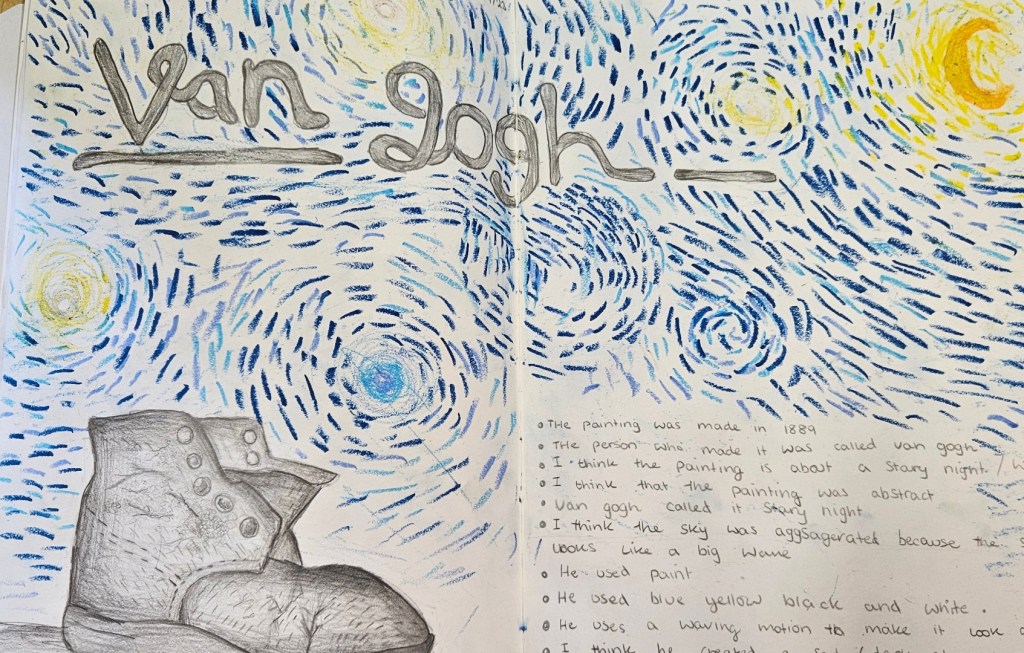 Van gogh
• THe painting was made in 1889
• THe person who made it was called van gogh
• I think the painting is about a stary night /
• I think that the painting was abstract
• Van gogh called it stary night
• I think the sky was aggsagerated because the
looks like a big wave
• He used paint
• He used blue yellow black and white.
• He uses a waving motion to make it look
• I think he created a